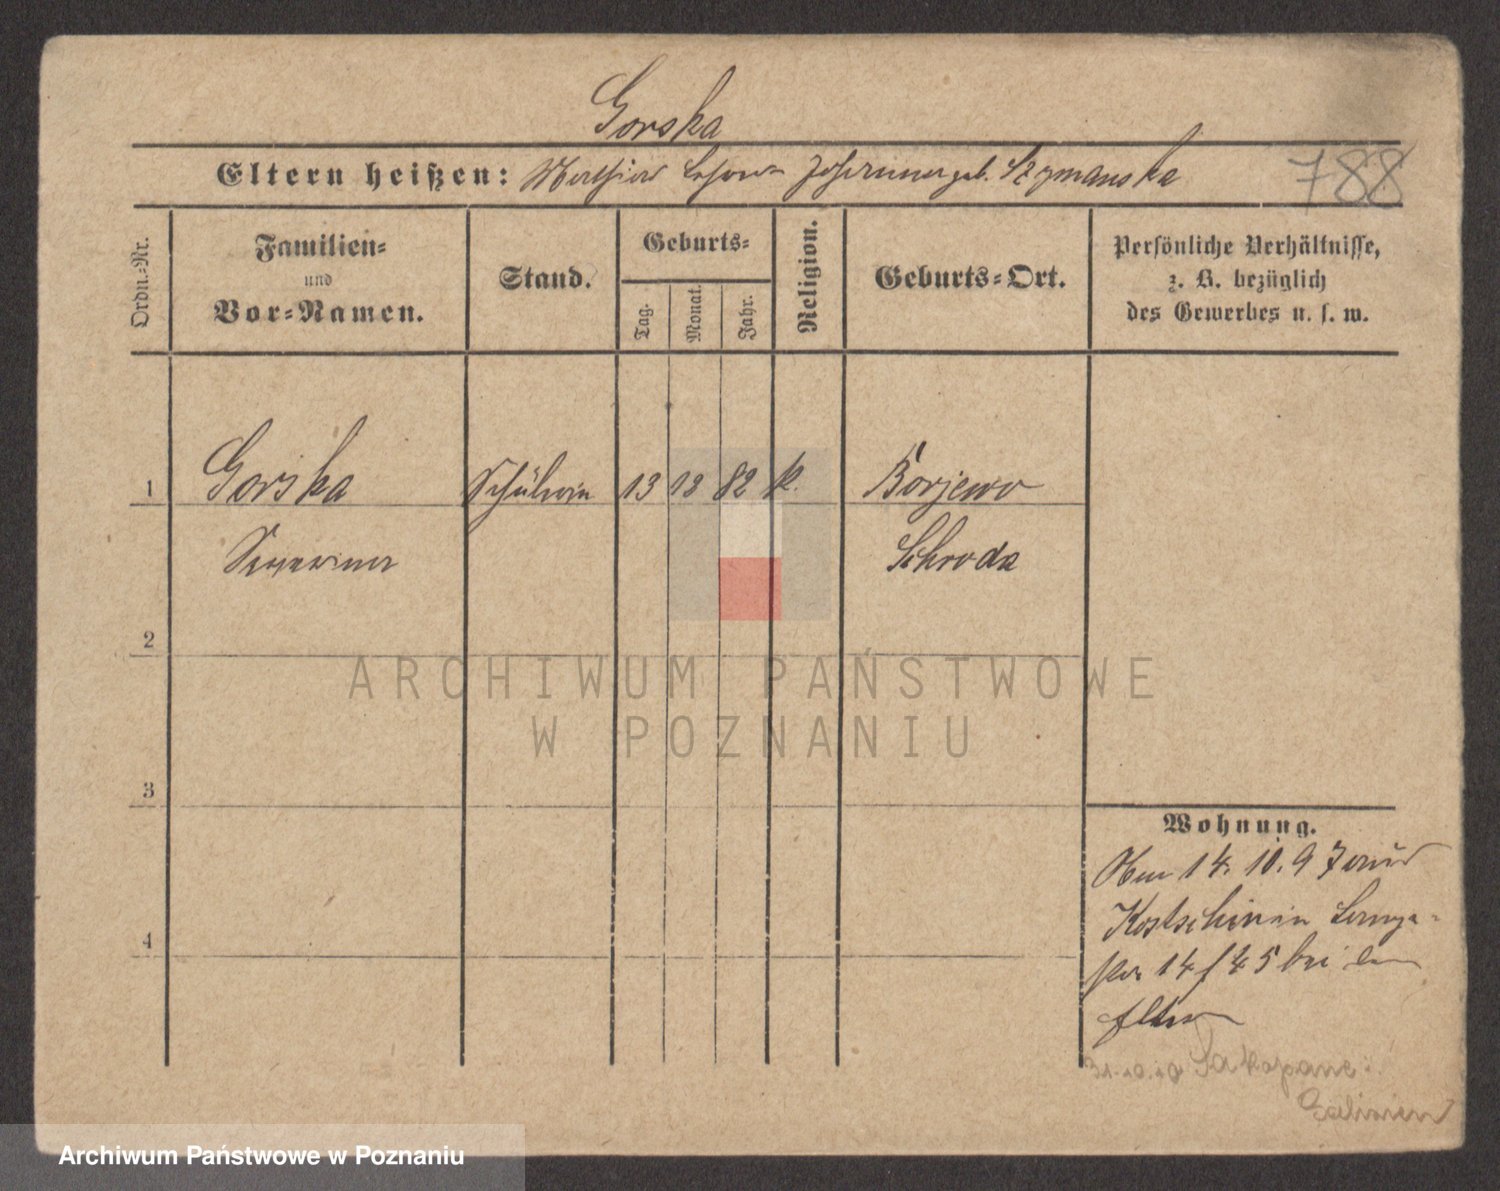 Gorska
Eltern heißen: geb. Szymanska
788
Ordn.-Nr.
Familien-
und
Vor-Namen.
Stand.
Geburts-
Tag.
Monat.
Jahr.
Religion.
Geburts-Ort.
Persönliche Verhältnisse,
z. B. bezüglich
des Gewerbes u. s. w.
1 Gorska Schülerin 13 82 k. Borjewo
Schroda
2
3
4
Wohnung.
14. 10. 97
Kostschin in
14/45 bei den
Eltern
Zakopane
Galizien
ARCHIWUM PAŃSTWOWE
W POZNANIU
Archiwum Państwowe w Poznaniu